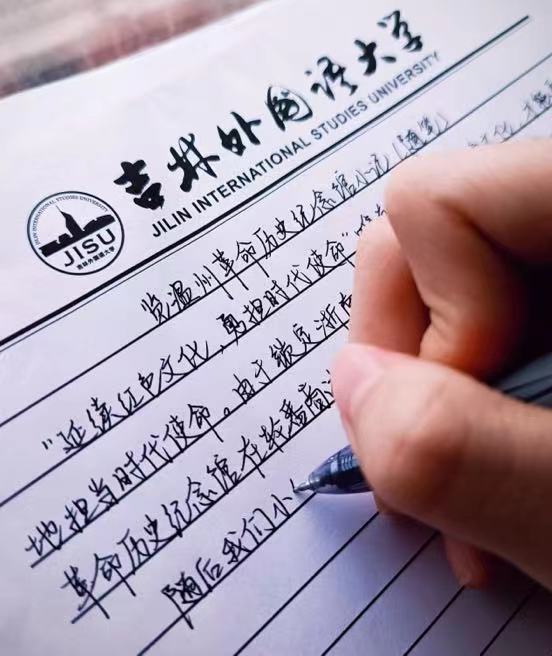 吉林外国语大学
JILIN INTERNATIONAL STUDIES UNIVERSITY
JILIN INTERNATIONAL STUDIES UNIVERSITY
JISU
吉林外国语大学
览温州革命历史纪念馆小记（随笔）
"延续红色文化，勇担时代使命"
地担当时代使命。由于锁定浙
革命历史纪念馆在轮番商
随后我们小